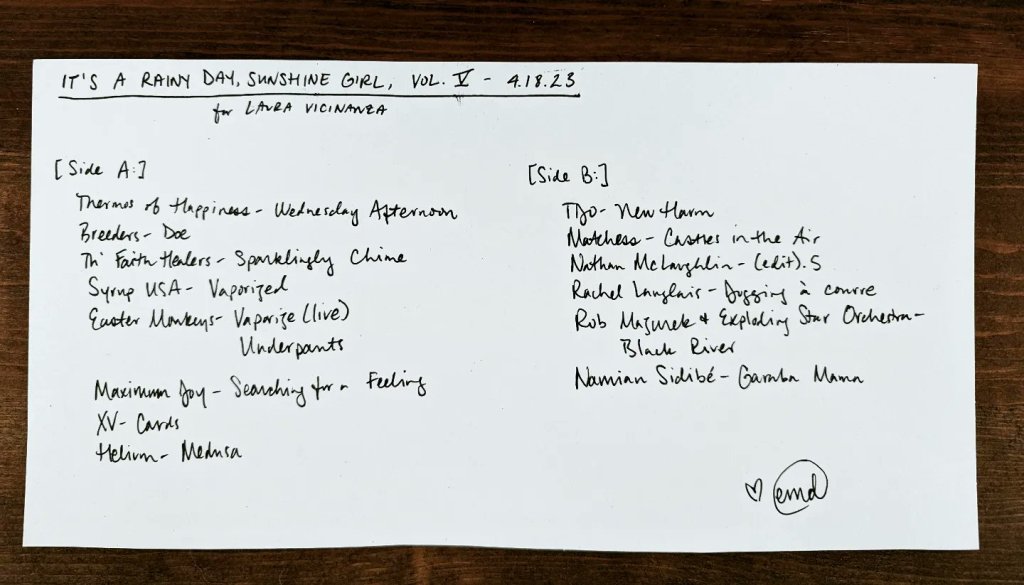 IT'S A RAINY DAY, SUNSHINE GIRL, VOL. V - 4.18.23
for LAURA VICINANZA
[Side A:]
Thermos of Happiness - Wednesday Afternoon
Breeders - Doe
Th' Faith Healers - Sparklingly Chime
Syrup USA - Vaporized
Easter Monkeys - Vaporize (live)
Underpants
Maximum Joy - Searching for a Feeling
XV - Cards
Helium - Medusa
[Side B:]
New Harm
Matchess - Castles in the Air
Nathan McLaughlin - (edit). 5
Rachel Langlais - à courre
Rob Mazurek + Exploding Star Orchestra -
Black River
Namian Sidibé - Garaba Mama
♡ emd